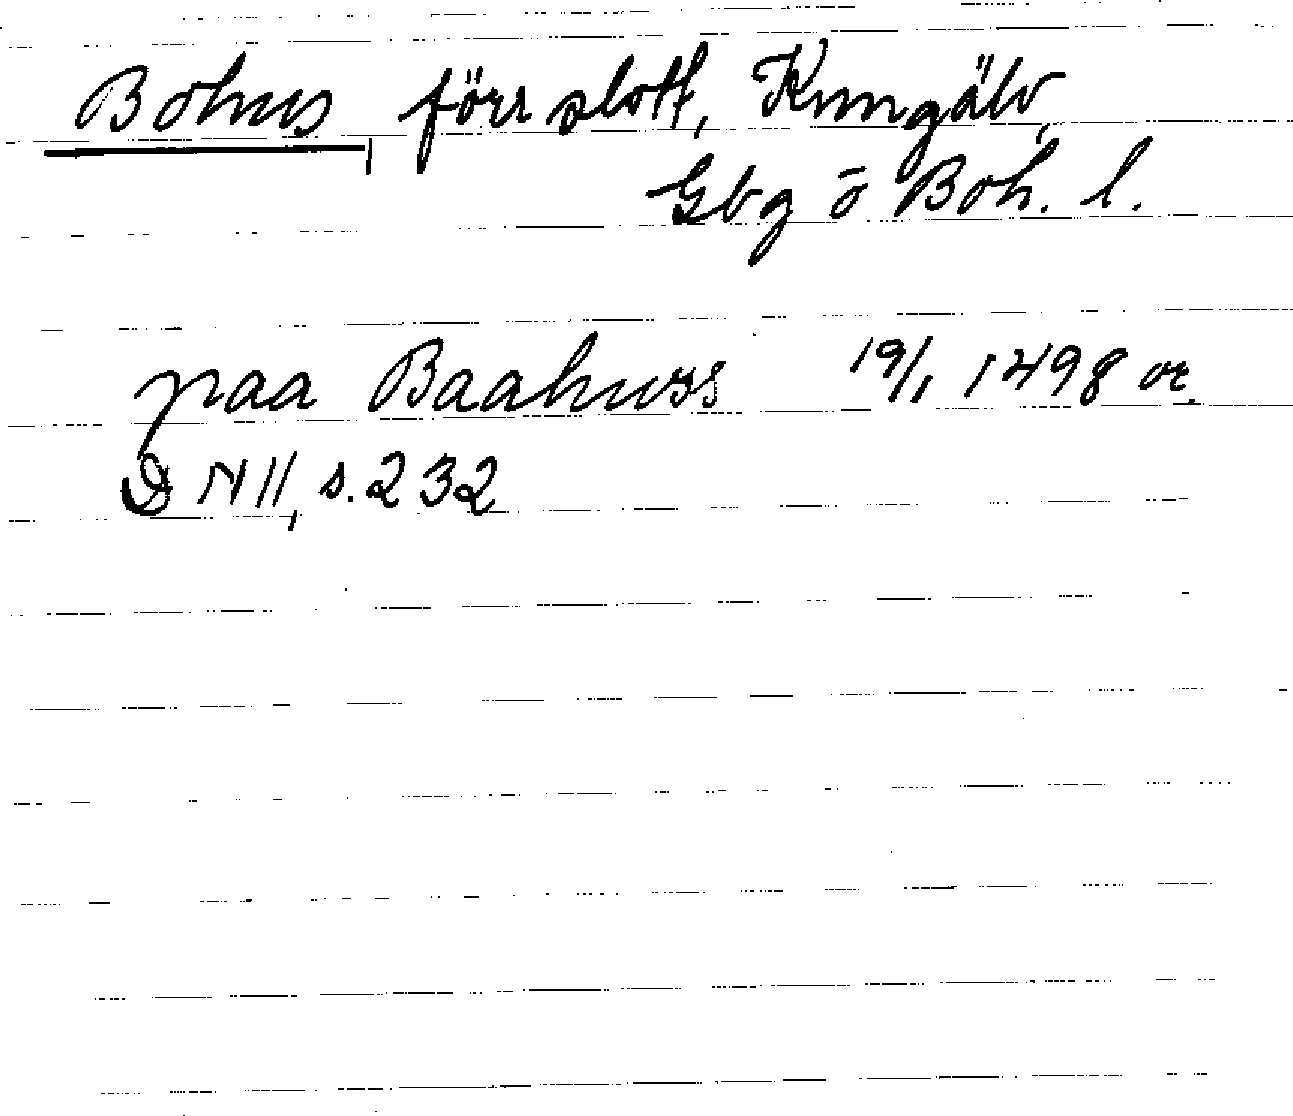 Bohus, förr slott, Kungälv,
Gbg o Boh. l.
paa Baahuss 19/1 1498 or.
DN II, s. 232